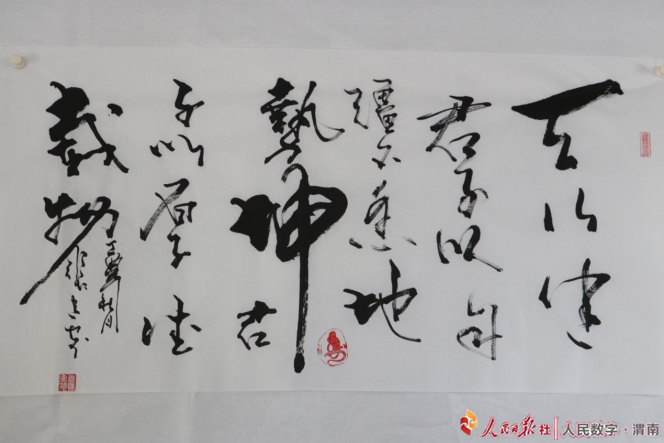 天行健
君子以自
彊不息地
势坤君
子以厚德
载物
人民日报社
人民数字·渭南